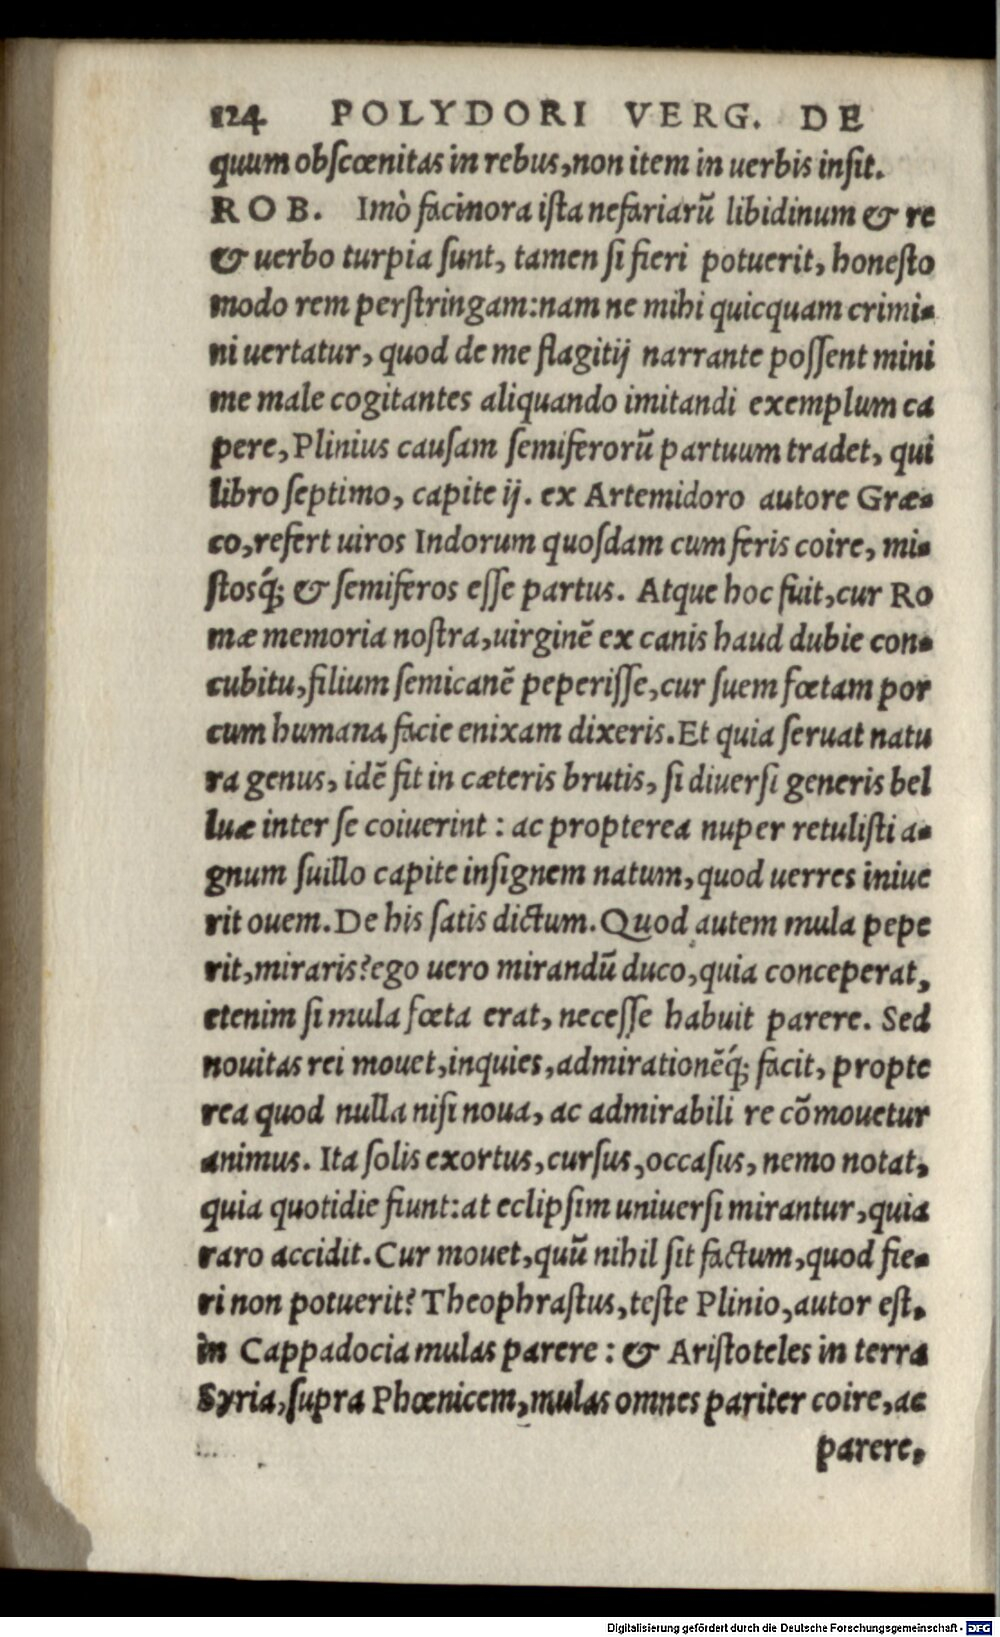 124 POLYDORI VERG. DE
quum obſcœnitas in rebus, non item in uerbis inſit.
ROB. Imò facinora iſta nefariarũ libidinum & re
& uerbo turpia ſunt, tamen ſi fieri potuerit, honeſto
modo rem perſtringam: nam ne mihi quicquam crimi-
ni uertatur, quod de me flagitij narrante poſſent mini
me male cogitantes aliquando imitandi exemplum ca
pere, Plinius cauſam ſemiferorũ partuum tradet, qui
libro ſeptimo, capite ij. ex Artemidoro autore Græ-
co, refert uiros Indorum quoſdam cum feris coire, mi-
ſtosq́; & ſemiferos eſſe partus. Atque hoc fuit, cur Ro
mæ memoria noſtra, uirginẽ ex canis haud dubie con-
cubitu, filium ſemicanẽ peperiſſe, cur ſuem fœtam por
cum humana facie enixam dixeris. Et quia ſeruat natu
ra genus, idẽ fit in cæteris brutis, ſi diuerſi generis bel
luæ inter ſe coiuerint: ac propterea nuper retuliſti a-
gnum ſuillo capite inſignem natum, quod uerres iniue
rit ouem. De his ſatis dictum. Quod autem mula pepe
rit, miraris? ego uero mirandũ duco, quia conceperat,
etenim ſi mula fœta erat, neceſſe habuit parere. Sed
nouitas rei mouet, inquies, admirationẽq́; facit, propte
rea quod nulla niſi noua, ac admirabili re cõmouetur
animus. Ita ſolis exortus, curſus, occaſus, nemo notat,
quia quotidie fiunt: at eclipſim uniuerſi mirantur, quia
raro accidit. Cur mouet, quũ nihil ſit factum, quod fie-
ri non potuerit? Theophraſtus, teſte Plinio, autor eſt,
in Cappadocia mulas parere: & Ariſtoteles in terra
Syria, ſupra Phœnicem, mulas omnes pariter coire, ac
parere,
Digitalisierung gefördert durch die Deutsche Forschungsgemeinschaft - DFG